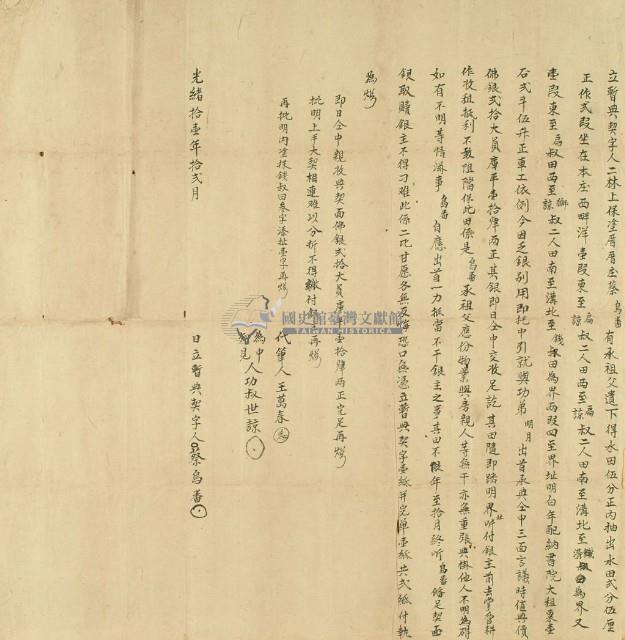 立暫典契字人二林上保塗厝厝庄蔡烏番有承祖父遺下得水田伍分正內抽出水田弍分伍厘
正作弍段坐在本庄西畔洋壹段東至扁諒叔二人田西至扁諒叔二人田南至溝北至溝為界又
壹段東至烏叔田西至諒叔二人田南至溝北至錢叔田為界兩段四至界址明白年配納書院大租粟壹
石弍斗伍升正車工依例今因乏銀別用即托中引就與功弟明月出首承典仝中三面言議時值典價
佛銀弍拾大員庫平壹拾肆兩正其銀即日仝中交收足訖其田隨即踏明界址付銀主前去掌管耕
作收租抵利不敢阻隔保此田係是烏番承祖父應份物業與房親人等無干亦無重張典掛他人不明為碍
如有不明等情滋事烏番自應出首一力抵當不干銀主之事其田不限年至拾月終听烏番備足契面
銀取贖銀主不得刁難此係二比甘愿各無反悔恐口無憑立暫典契字壹紙并完單壹紙共弍紙付執
為炤
即日仝中親收典契面佛銀弍拾大員庫平壹拾肆兩正完足再炤
批明上手大契相連難以分拆不得繳付銀主再炤
再批明內塗抹錢叔田叁字添址壹字再炤
代筆人王萬春
為中人功叔世諒
知見
光緒拾壹年拾弍月 日立暫典契字人蔡烏番
國史館臺灣文獻館
TAIWAN HISTORICA